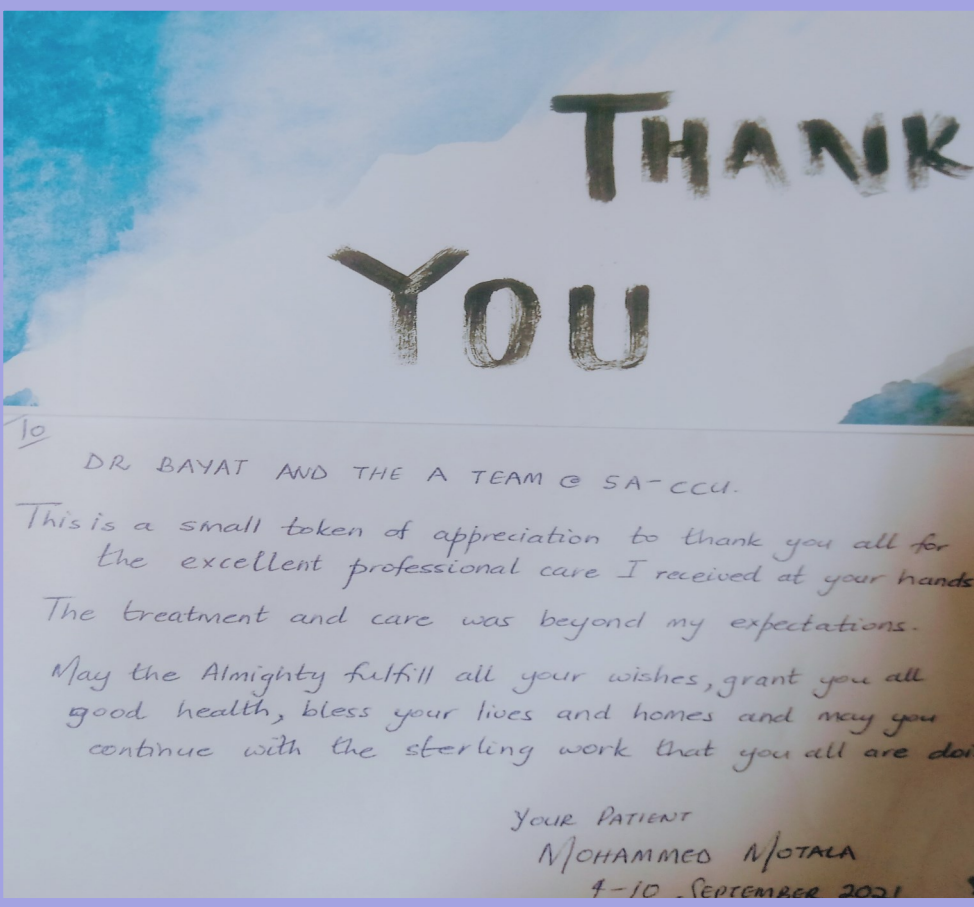 THANK
YOU
To
DR BAYAT AND THE A TEAM @ 5A-CCU.
This is a small token of appreciation to thank you all for
the excellent professional care I received at your hands
The treatment and care was beyond my expectations.
May the Almighty fulfill all your wishes, grant you all
good health, bless your lives and homes and may you
continue with the sterling work that you all are doi
YOUR PATIENT
MOHAMMED MOTALA
4-10 SEPTEMBER 2021